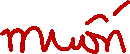 muốn